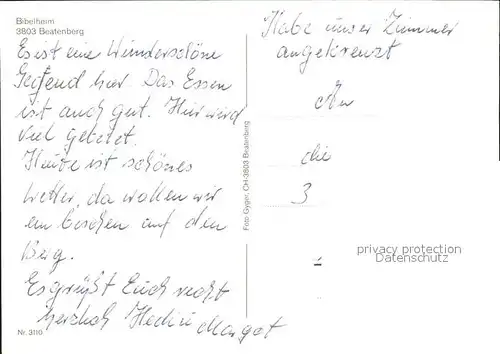 Bibelheim
3803 Beatenberg
Es ist eine Wunderschöne
Gegend hier. Das Essen
ist auch gut. Hier wird
viel gebetet.
Heute ist schönes
Wetter, da wollen wir
ein bischen auf den
Berg.
Es grüßt Euch recht
herzlich Hedi u Margot
Nr. 3110
Foto Gyger, CH-3803 Beatenberg
Habe unser Zimmer
angekreuzt
An
die
3
privacy protection
Datenschutz